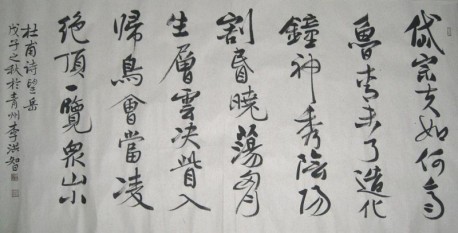 岱宗夫如何齊
魯青未了造化
鐘神秀陰陽
割昏曉蕩胸
生層雲決眥入
歸鳥會當凌
絶頂一覽衆山小
杜甫詩望岳
戊子之秋於青州李洪智